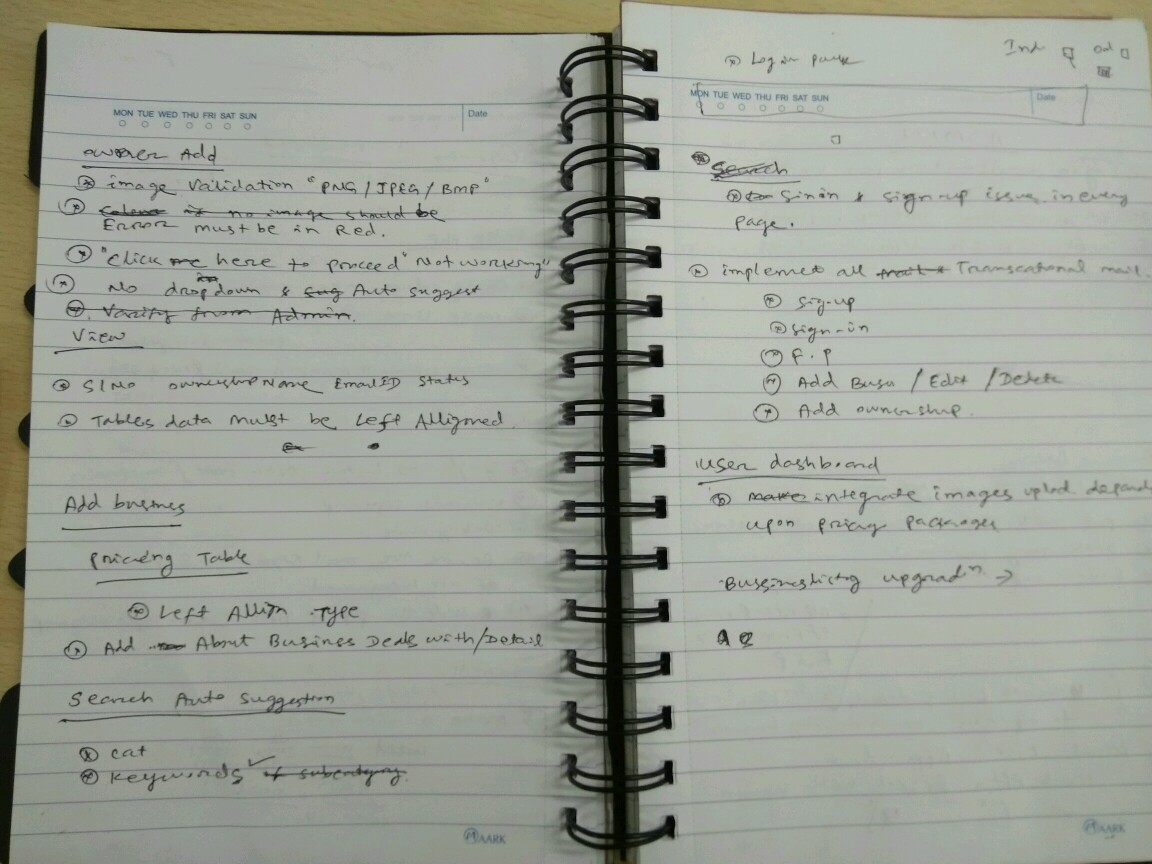 MON TUE WED THU FRI SAT SUN
Date
owner Add
image Validation "PNG/JPEG/BMP"
if no image should be
Error must be in Red.
"Click me here to proceed" Not working"
in
No dropdown & sug Auto suggest
Varify from Admin.
View
SlNo ownership Name Email ID Status
Tables data must be Left Alligned.
Add busines
Priceing Table
Left Allign Type
Add About Business Deals with/Detail
Search Auto suggestion
cat
Keywords of subcategory.
MAARK
Ind Out
Log in
MON TUE WED THU FRI SAT SUN
Date
Search
Sinin & sign-up issues in every
page.
implemet all Transcational mail.
Sig-up
Sign-in
F.P
Add Busi / Edit / Delete
Add ownership.
User dashboard
Make integrate images uplod depend
upon pricing packages
Bussineslisting upgradn →
MAARK